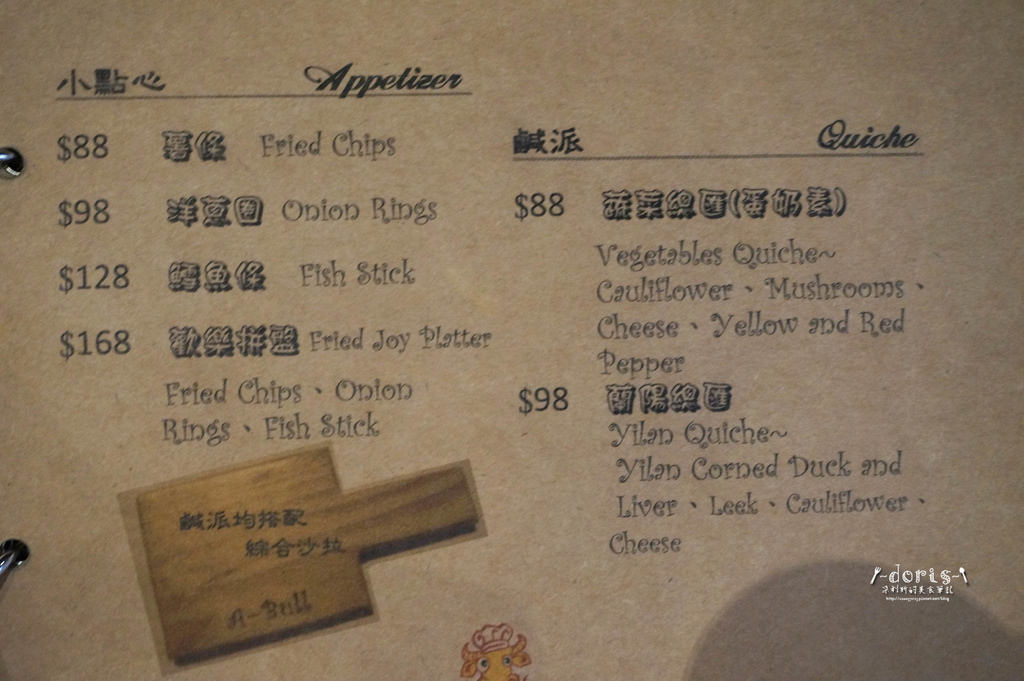 小點心 Appetizer
$88 薯條 Fried Chips
$98 洋蔥圈 Onion Rings
$128 鱈魚條 Fish Stick
$168 歡樂拼盤 Fried Joy Platter
Fried Chips、Onion
Rings、Fish Stick
鹹派均搭配
綜合沙拉
A-Bull
鹹派 Quiche
$88 蔬菜總匯(蛋奶素)
Vegetables Quiche~
Cauliflower、Mushrooms、
Cheese、Yellow and Red
Pepper
$98 蘭陽總匯
Yilan Quiche~
Yilan Corned Duck and
Liver、Leek、Cauliflower、
Cheese
-doris-